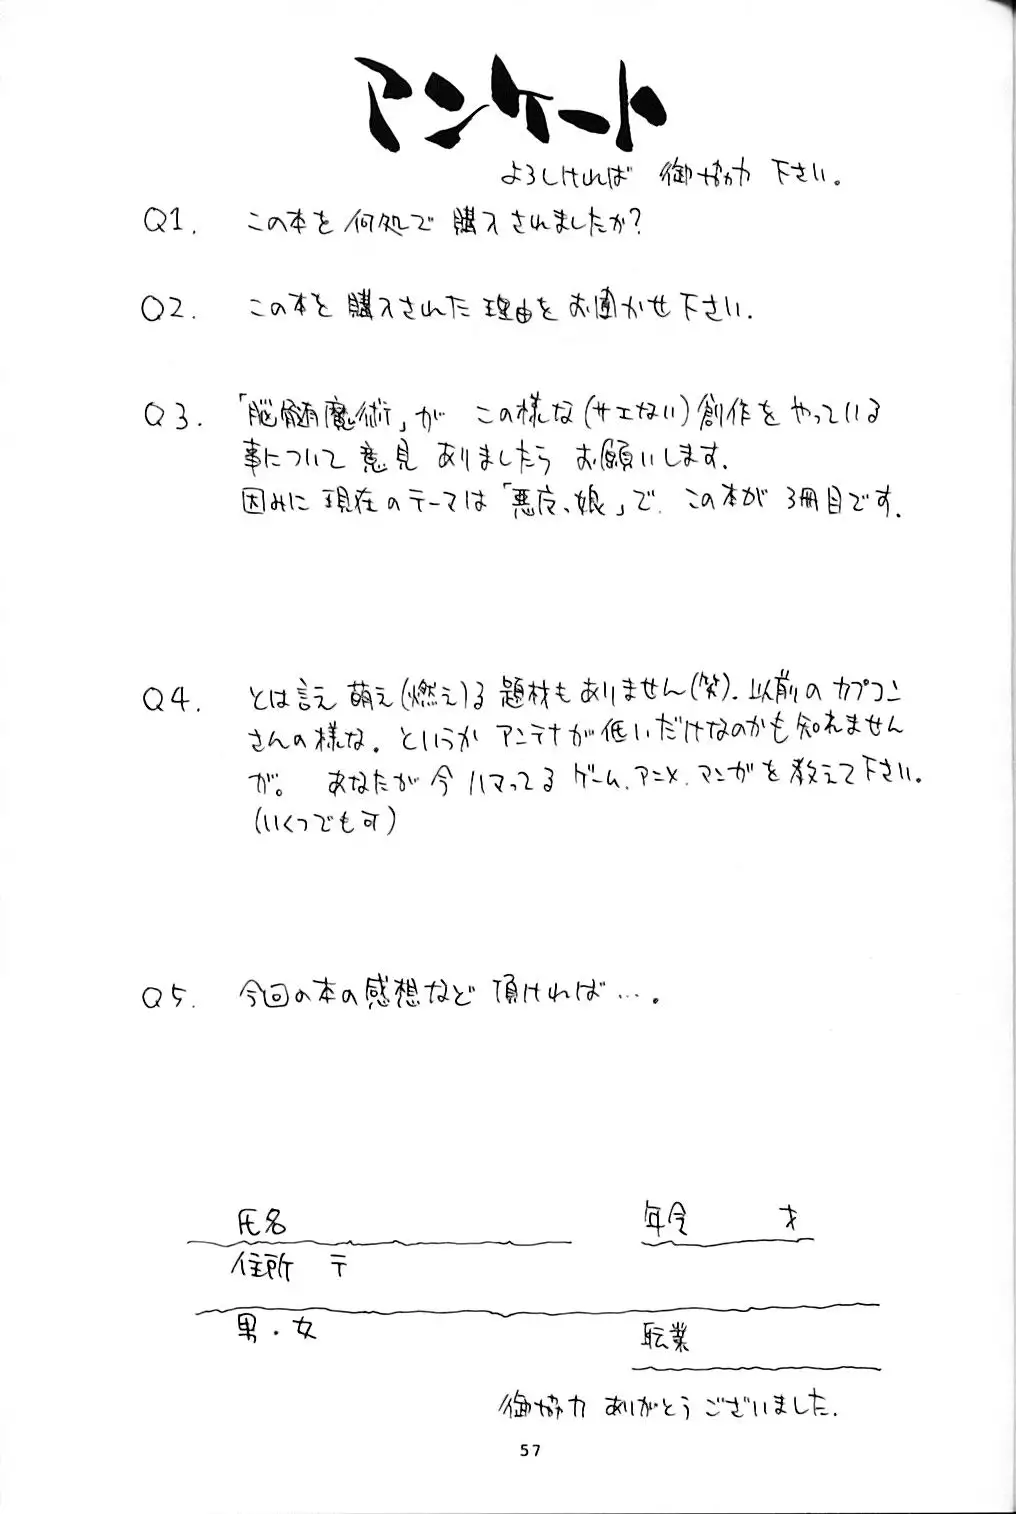 アンケート
よろしければ 御協力 下さい。
Q1. この本を何処で購入されましたか?
Q2. この本を購入された理由をお聞かせ下さい.
Q3. 「脳髄魔術」が この様な(サエない)創作をやっている
事について意見ありましたらお願いします.
因みに現在のテーマは「悪、娘」で.この本が3冊目です.
Q4. とは言え萌え(燃え)る題材もありません(笑).以前のカプコン
さんの様な.というかアンテナが低いだけなのかも知れません
が。 あなたが今ハマってるゲーム.アニメ.マンガを教えて下さい.
(いくつでも可)
Q5. 今回の本の感想など頂ければ….
氏名 年令 才
住所 〒
男・女 職業
御協力 ありがとうございました.
57